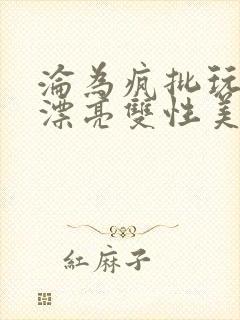 淪為瘋批玩
漂亮雙性美
紅麻子